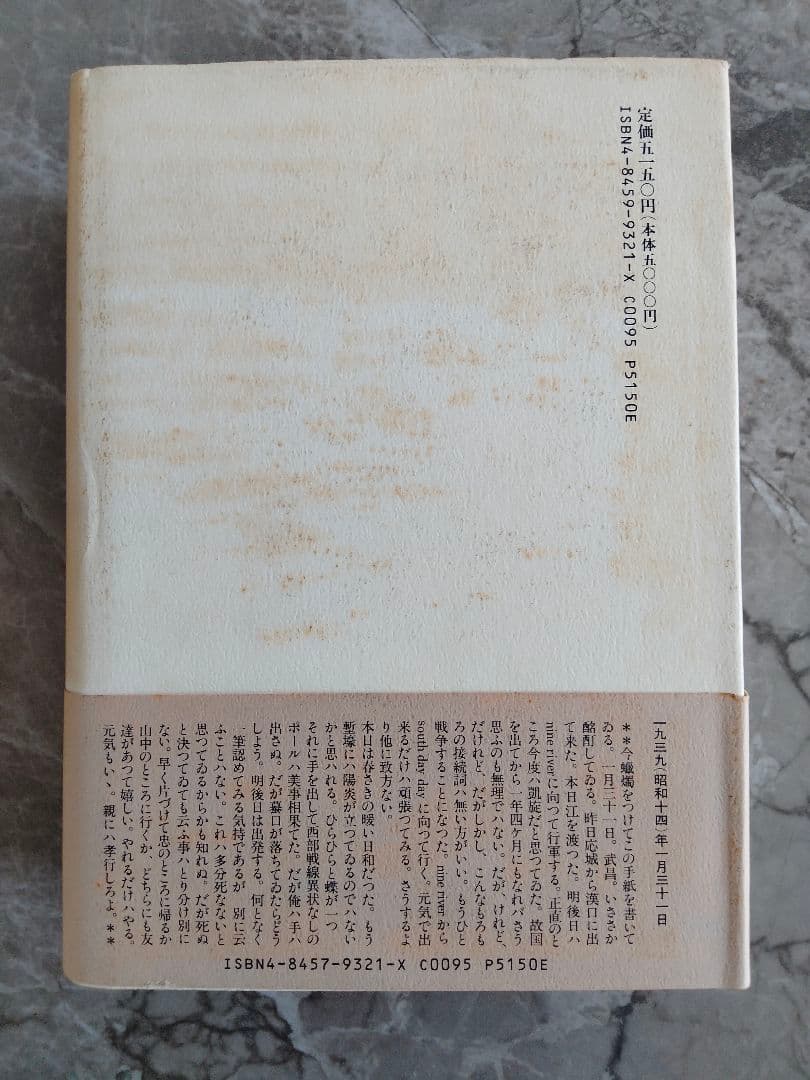 定価五一五〇円(本体五〇〇〇円)
ISBN4-8459-9321-X C0095 P5150E
一九三九(昭和十四)年一月三十一日
**今蠟燭をつけてこの手紙を書いて
ゐる。一月三十一日。武昌。いささか
酩酊してゐる。昨日応城から漢口に出
て来た。本日江を渡つた。明後日ハ
nine riverに向つて行軍する。正直のと
ころ今度ハ凱旋だと思つてゐた。故国
を出てから一年四ケ月にもなれバさう
思ふのも無理でハない。だが、けれど、
だけれど、だがしかし、こんなもろも
ろの接続詞ハ無い方がいい。もうひと
戦争することになつた。nine riverから
south day dayに向つて行く。元気で出
来るだけハ頑張つてみる。さうするよ
り他に致方ない。
本日は春さきの暖い日和だつた。もう
塹壕にハ陽炎が立つてゐるのでハない
かと思ハれる。ひらひらと蝶が一つ
それに手を出して西部戦線異状なしの
ポールハ美事相果てた。だが俺ハ手ハ
出さぬ。だが蟇口が落ちてゐたらどう
しよう。明後日は出発する。何となく
一筆認めてみる気持であるが 別に云
ふことハない。これハ多分死なないと
思つてゐるからかも知れぬ。だが死ぬ
と決つてゐても云ふ事ハとり分け別に
ない。早く片づけて忠のところに帰るか
山中のところに行くか、どちらにも友
達があつて嬉しい。やれるだけハやる。
元気もいゝ。親にハ孝行しろよ。**
ISBN4-8457-9321-X C0095 P5150E